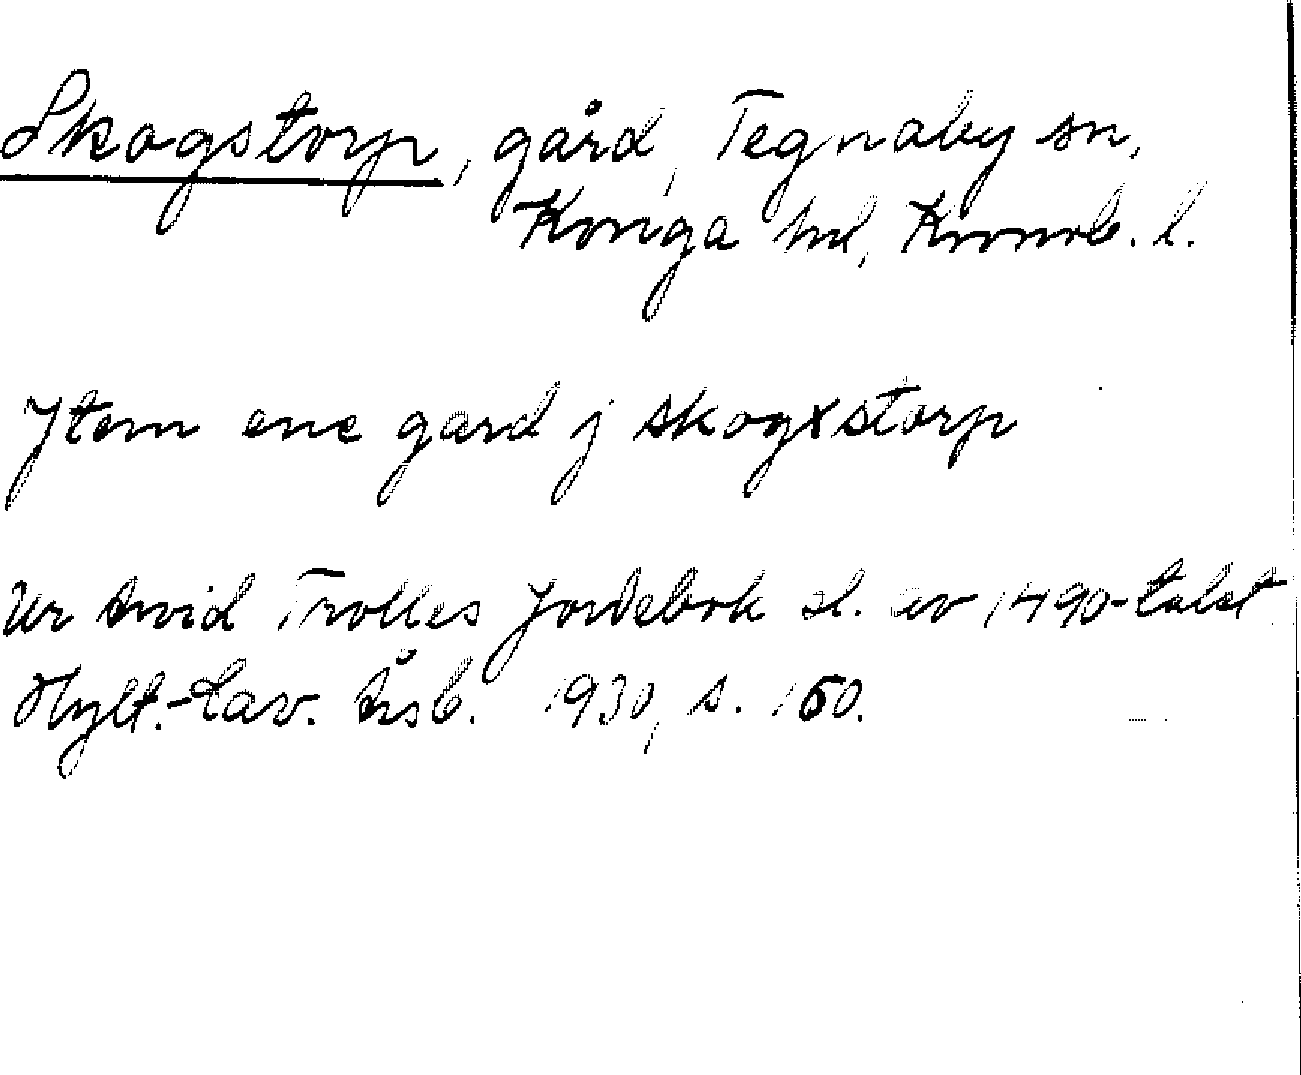 Skogstorp, gård, Tegnaby sn,
Konga hd, Kronob. l.
Jtem ene gard j skogxstorp
Ur Arvid Trolles Jordebok sl. av 1490-talet
Hylt.-Cav. Årsb. 1930, s. 160.